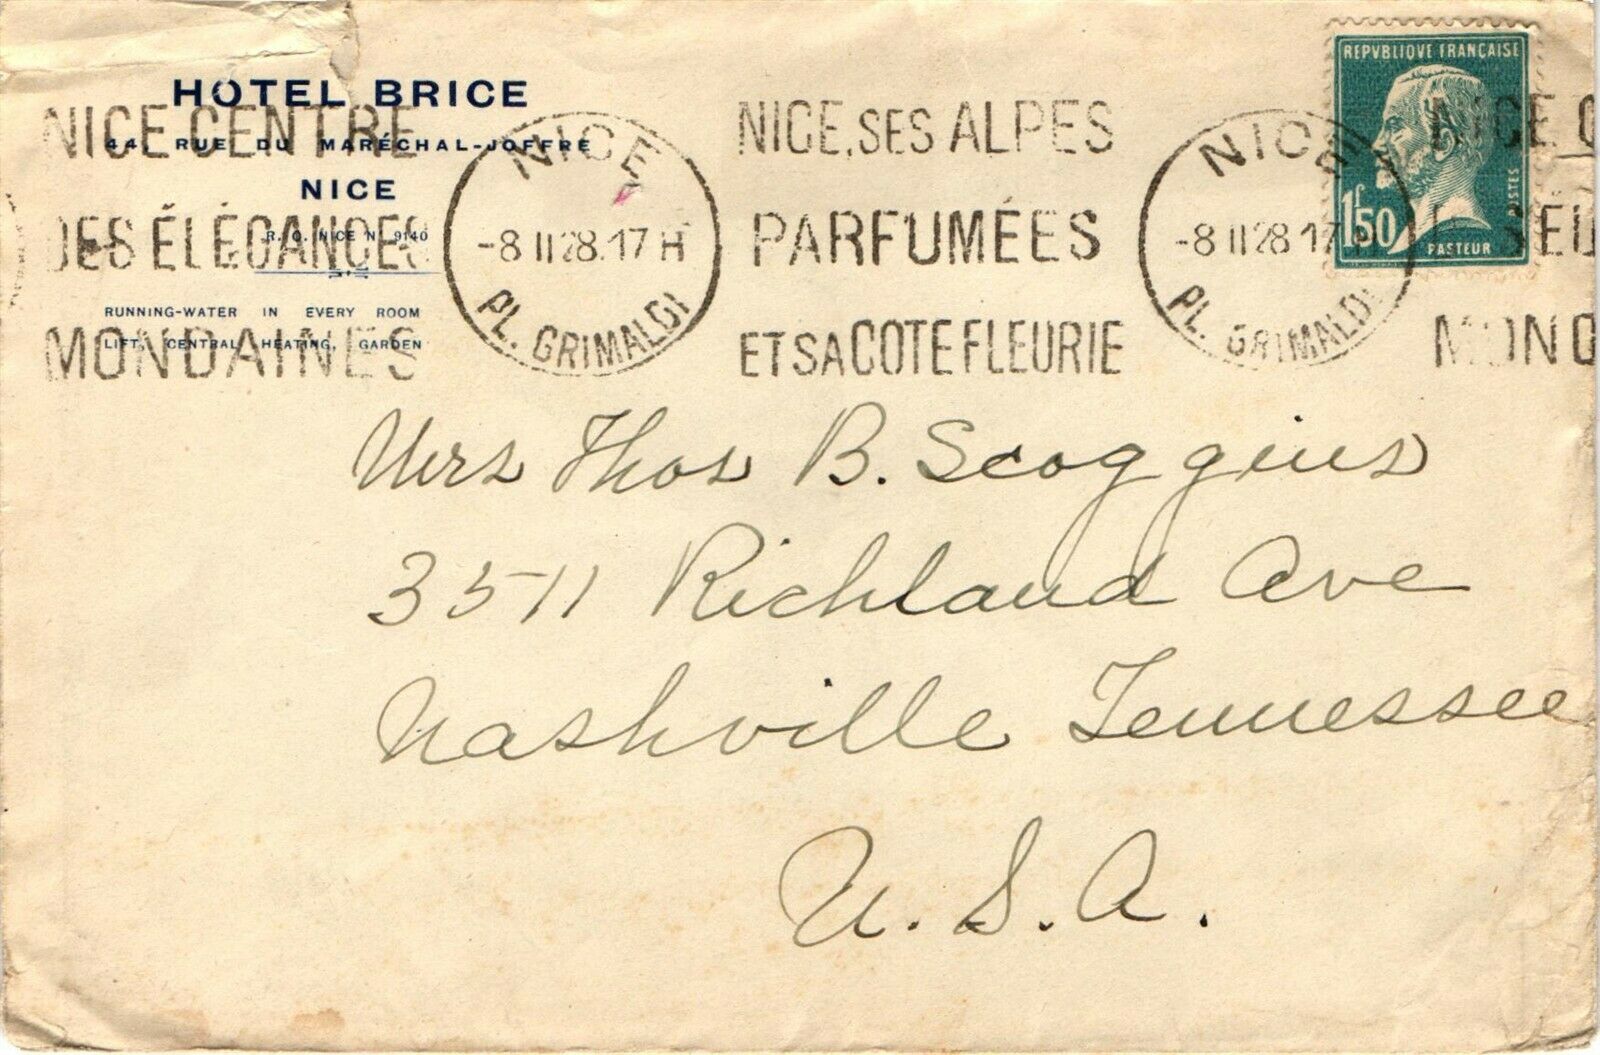 HOTEL BRICE
44, RUE DU MARÉCHAL-JOFFRE
NICE
R. C. NICE N° 9140
RUNNING-WATER IN EVERY ROOM
LIFT, CENTRAL HEATING, GARDEN
NICE CENTRE
DES ÉLÉGANCES
MONDAINES
NICE
-8 II 28.17 H
PL. GRIMALDI
NICE, SES ALPES
PARFUMÉES
ET SA COTE FLEURIE
NICE
-8 II 28.17
PL. GRIMALDI
NICE C
MON
REPVBLIQVE FRANÇAISE
1f50
POSTES
PASTEUR
Mrs Thos B. Scoggins
3511 Richland Ave
Nashville Tennessee
U.S.A.